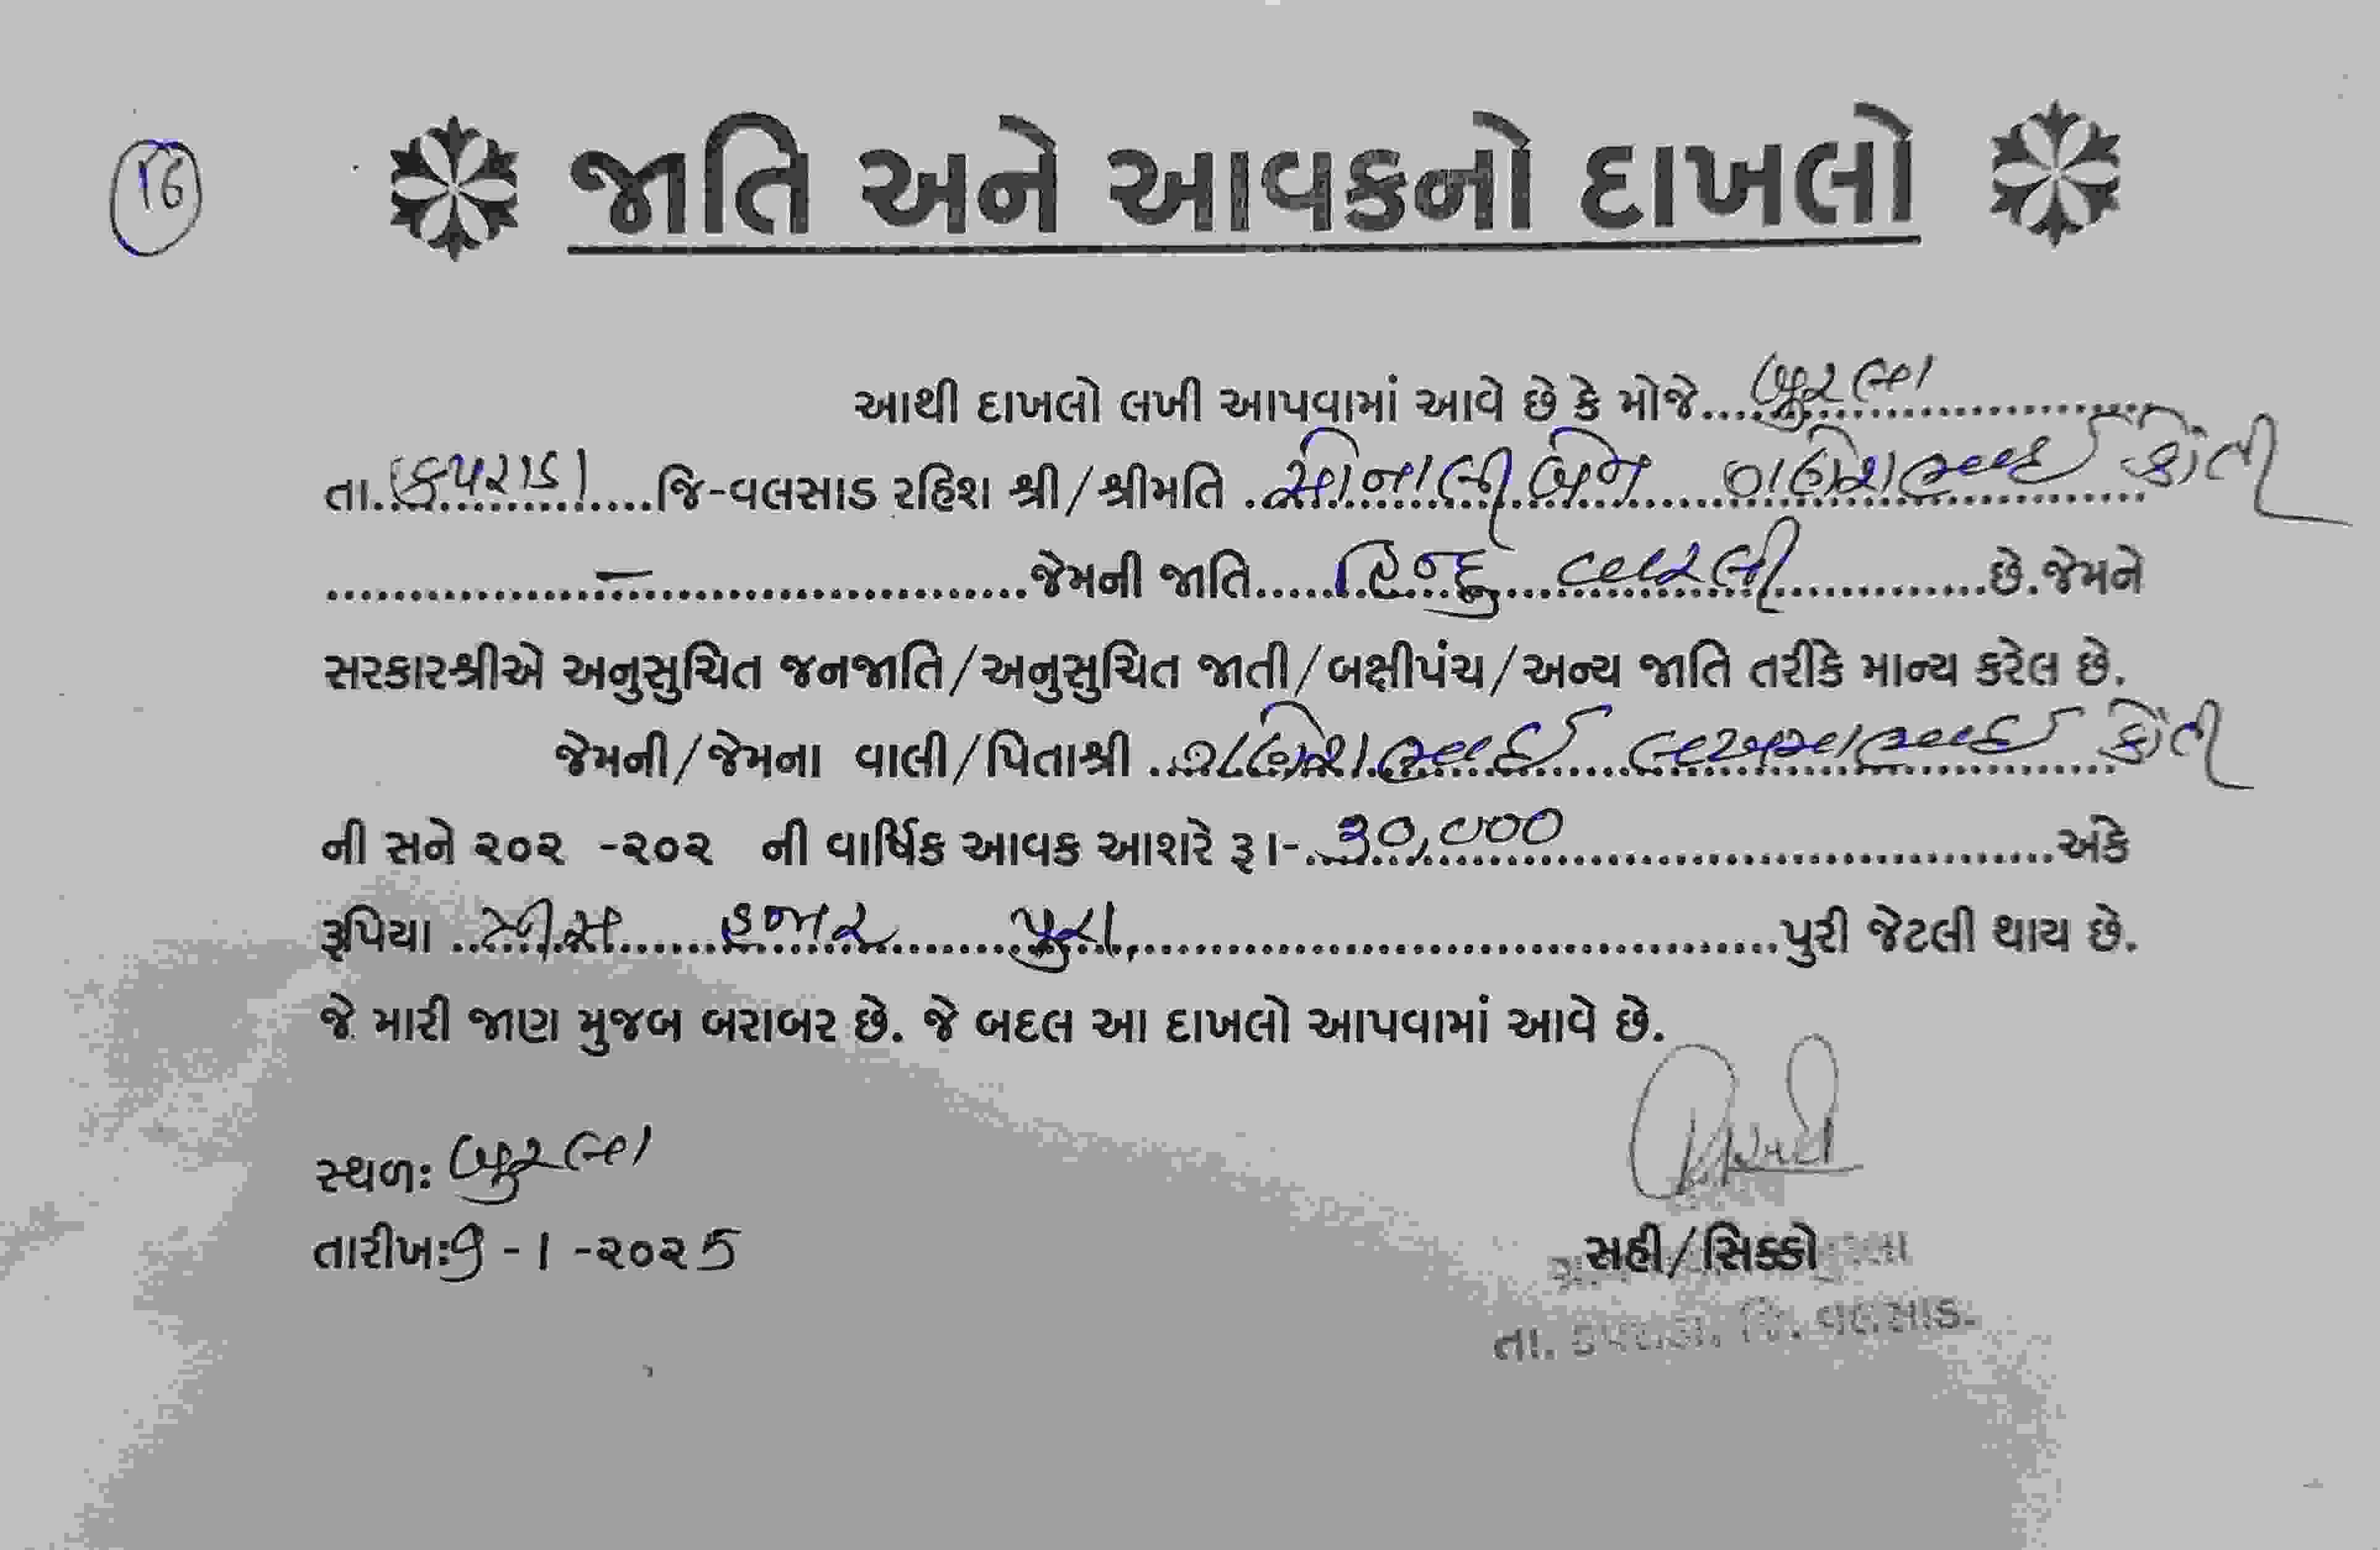 16
જાતિ અને આવકનો દાખલો
આથી દાખલો લખી આપવામાં આવે છે કે મોજે....બુરલા
તા.કપરાડા....જિ-વલસાડ રહિશ શ્રી/શ્રીમતિ .સોનાલીબેન ગણેશભાઈ
..........–..........જેમની જાતિ.....હિન્દુ વારલી..........છે.જેમને
સરકારશ્રીએ અનુસુચિત જનજાતિ/અનુસુચિત જાતી/બક્ષીપંચ/અન્ય જાતિ તરીકે માન્ય કરેલ છે.
જેમની/જેમના વાલી/પિતાશ્રી ..ગણેશભાઈ
ની સને ૨૦૨ -૨૦૨ ની વાર્ષિક આવક આશરે રૂા-..૩૦,૦૦૦..........અંકે
રૂપિયા ..ત્રીસ હજાર પુરા..........પુરી જેટલી થાય છે.
જે મારી જાણ મુજબ બરાબર છે. જે બદલ આ દાખલો આપવામાં આવે છે.
સ્થળઃ બુરલા
તારીખઃ 9 - 1 -૨૦૨5
સહી/સિક્કો
તા. કપરાડા, જિ. વલસાડ.